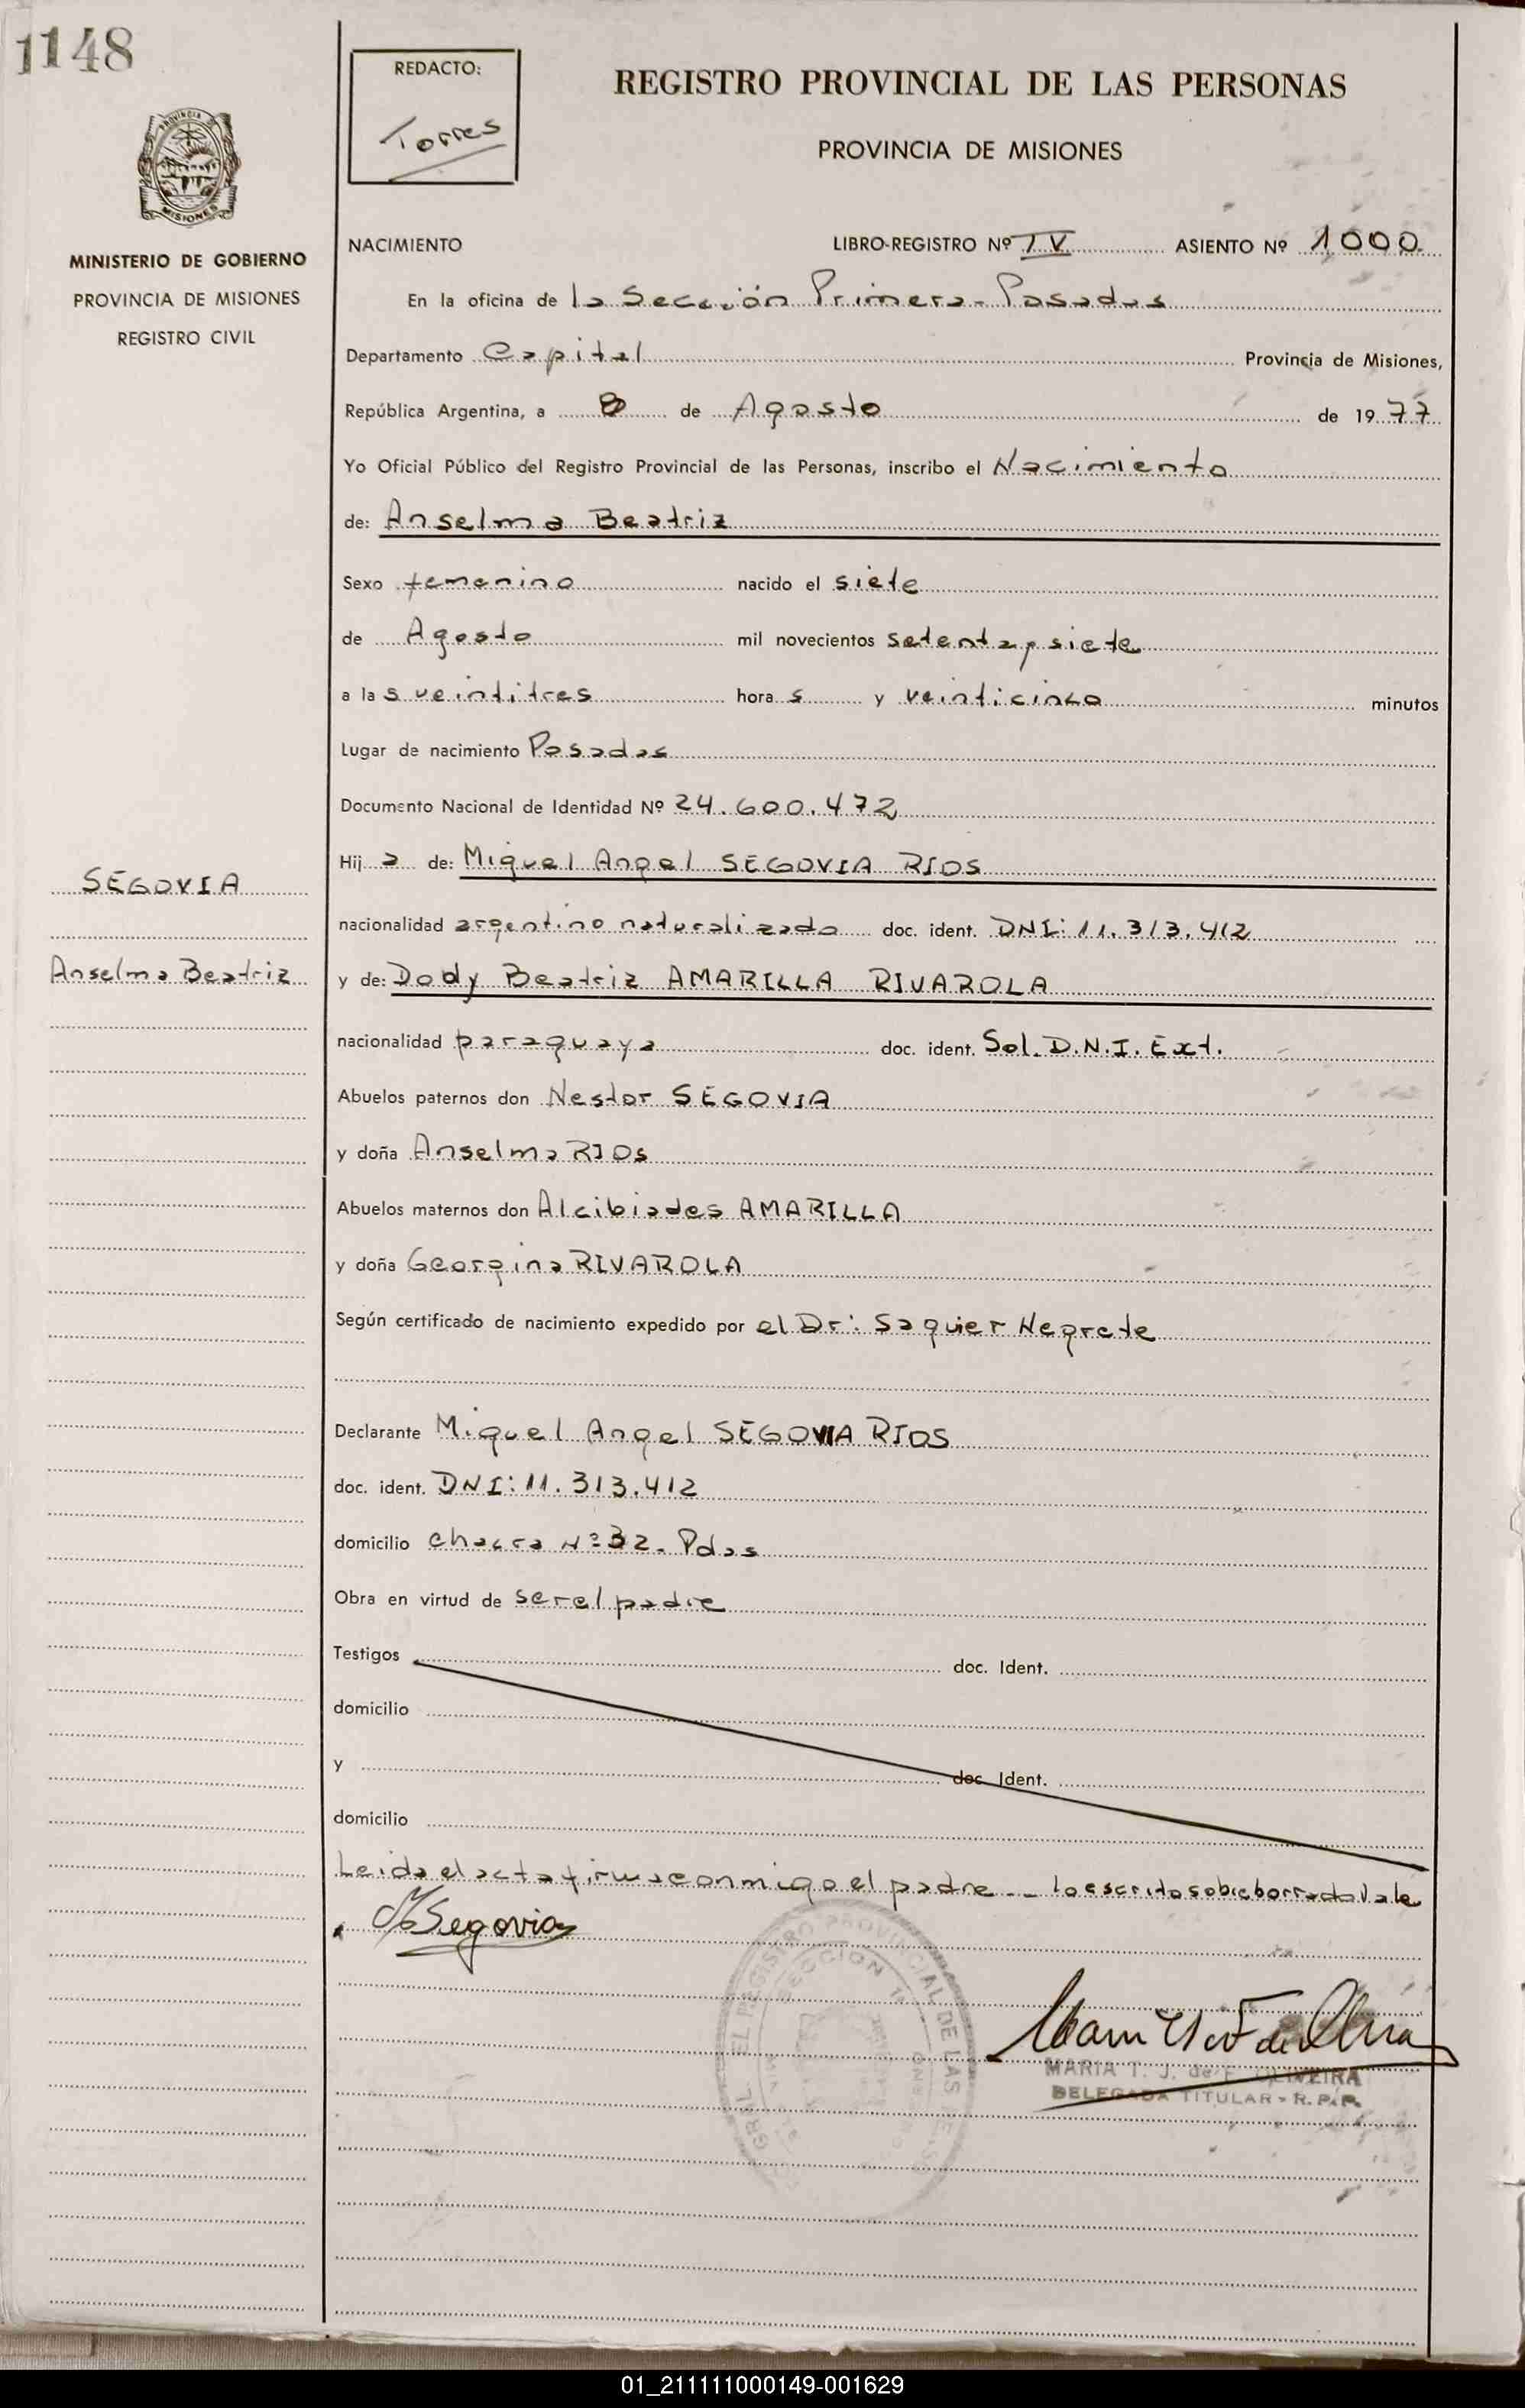 1148
REDACTO:
Torres
REGISTRO PROVINCIAL DE LAS PERSONAS
PROVINCIA DE MISIONES
MISIONES
MINISTERIO DE GOBIERNO
PROVINCIA DE MISIONES
REGISTRO CIVIL
NACIMIENTO LIBRO-REGISTRO Nº IV ASIENTO Nº 1000
En la oficina de la Sección Primera - Posadas
Departamento Capital Provincia de Misiones,
República Argentina, a 8 de Agosto de 1977
Yo Oficial Público del Registro Provincial de las Personas, inscribo el Nacimiento
de: Anselma Beatriz
Sexo femenino nacido el siete
de Agosto mil novecientos setenta y siete
a las veintitres horas y veinticinco minutos
Lugar de nacimiento Posadas
Documento Nacional de Identidad Nº 24.600.472
Hija de: Miguel Angel SEGOVIA RIOS
SEGOVIA
nacionalidad argentino naturalizado doc. ident. DNI: 11.313.412
Anselma Beatriz
y de: Dody Beatriz AMARILLA RIVAROLA
nacionalidad paraguaya doc. ident. Sol. D.N.I. Ext.
Abuelos paternos don Nestor SEGOVIA
y doña Anselma RIOS
Abuelos maternos don Alcibiades AMARILLA
y doña Georgina RIVAROLA
Según certificado de nacimiento expedido por el Dr: Saquier Negrete
Declarante Miguel Angel SEGOVIA RIOS
doc. ident. DNI: 11.313.412
domicilio chacra Nº 32. Pdas
Obra en virtud de ser el padre
Testigos doc. Ident.
domicilio
y doc. Ident.
domicilio
Leida el acta firma conmigo el padre -- lo escrito sobre borrado Vale
MSegovia
GRAL. EL REGISTRO PROVINCIAL DE LAS
SECCION 1ª
MARIA T. J. de F. OLIVEIRA
DELEGADA TITULAR - R. P. P.
01_211111000149-001629